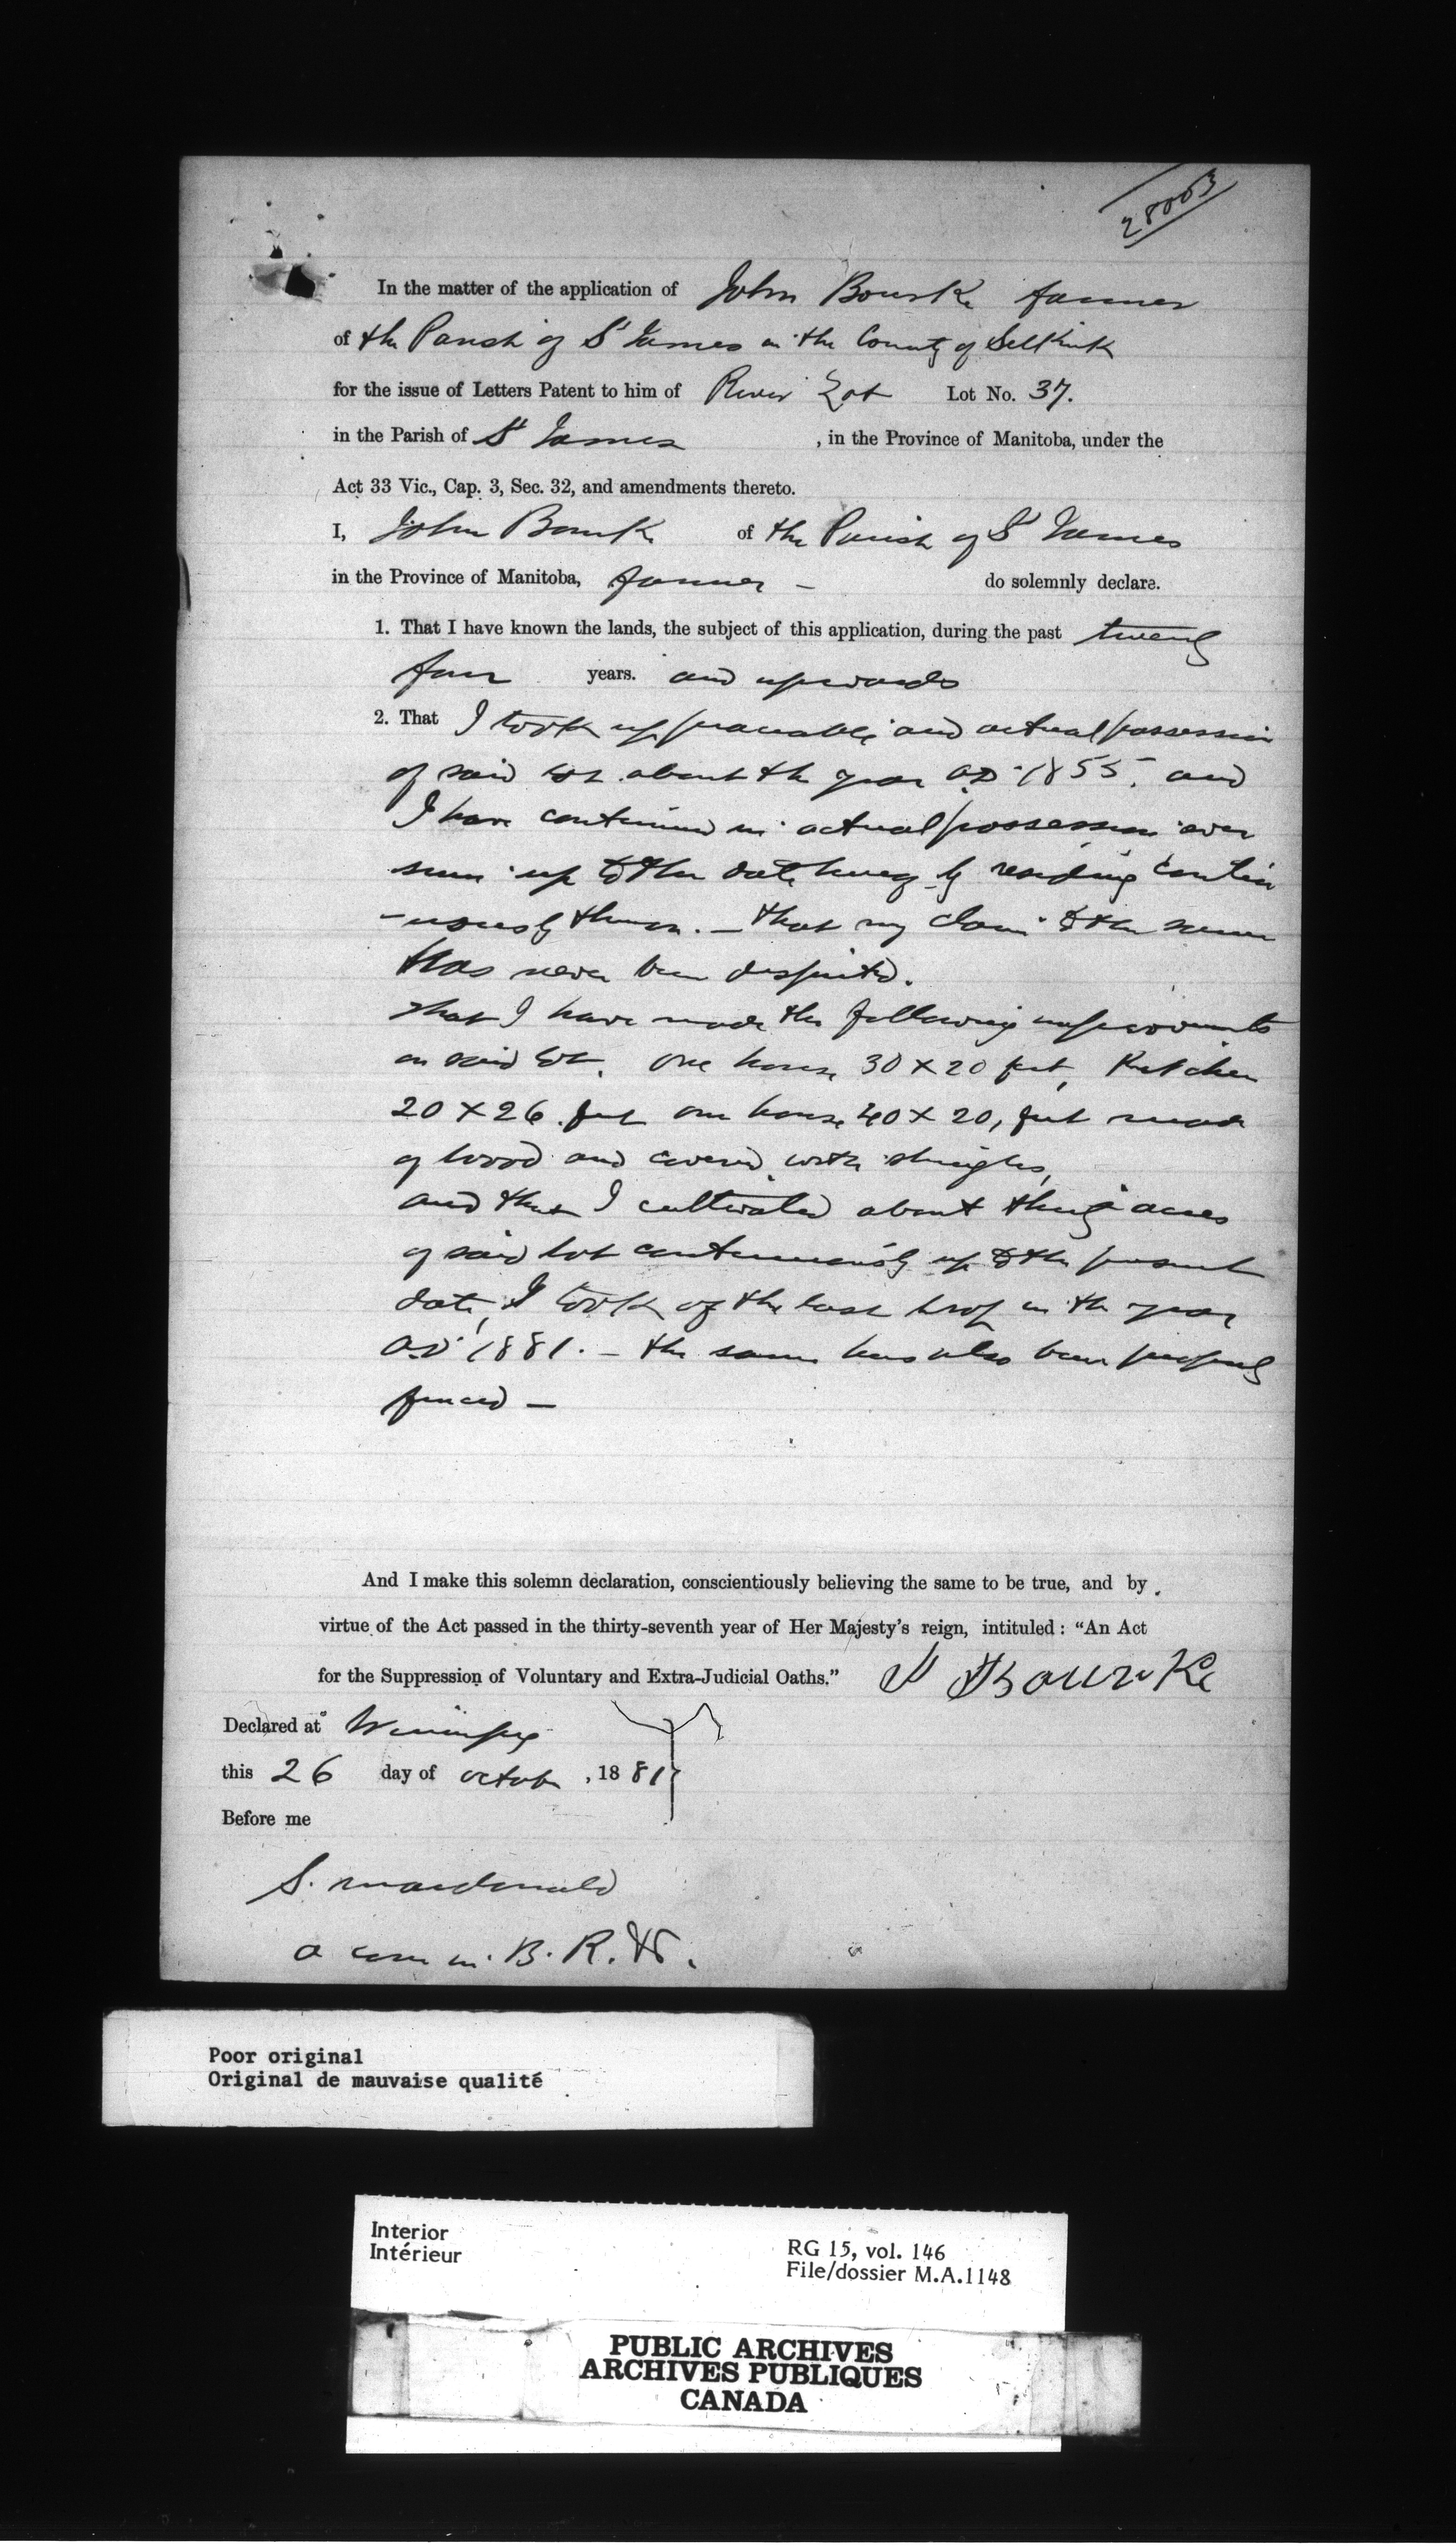 28003
In the matter of the application of John Bourke farmer
of the Parish of St James in the County of Selkirk
for the issue of Letters Patent to him of River Lot Lot No. 37.
in the Parish of St James , in the Province of Manitoba, under the
Act 33 Vic., Cap. 3, Sec. 32, and amendments thereto.
I, John Bourke of the Parish of St James
in the Province of Manitoba, farmer - do solemnly declare.
1. That I have known the lands, the subject of this application, during the past twenty
four years. and upwards
2. That I took up peaceable and actual possession
of said lot about the year AD 1855. and
I have continued in actual possession ever
since up to the date hereof by residing contin
-uously thereon. - that my claim to the same
has never been disputed.
that I have made the following improvements
on said lot. One house 30 x 20 feet, Kitchen
20 x 26 feet one house 40 x 20, feet made
of wood and covered with shingles,
and that I cultivated about thirty acres
of said lot continuously up to the present
date, I took of the last crop in the year
AD 1881. - the same has also been properly
fenced -
And I make this solemn declaration, conscientiously believing the same to be true, and by
virtue of the Act passed in the thirty-seventh year of Her Majesty's reign, intituled: "An Act
for the Suppression of Voluntary and Extra-Judicial Oaths." J Bourke
Declared at Winnipeg
this 26 day of October , 18 81
Before me
S. Macdonald
a com in B. R. &c.
Poor original
Original de mauvaise qualité
Interior
Intérieur
RG 15, vol. 146
File/dossier M.A.1148
PUBLIC ARCHIVES
ARCHIVES PUBLIQUES
CANADA